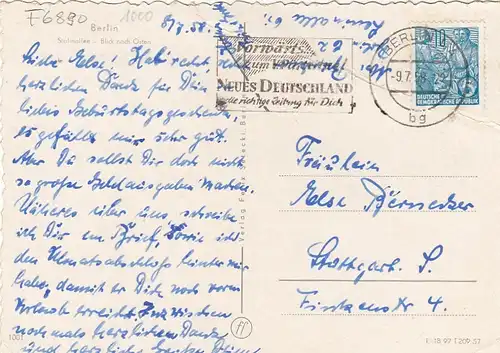 F6890
1000
Berlin
Stalinallee – Blick nach Osten
8/7.58.
Liebe Else! Habt recht
herzlichen Dank für Dein
liebes Geburtstagsgeschenk,
es gefällt mir sehr gut.
Aber Du sollst Dir doch nicht
so große Geldausgaben machen.
Näheres über uns, schreibe
ich Dir im Brief, sowie ich
den Monatsabschluß hinter mir
habe, damit er Dich noch vorm
Urlaub erreicht. Inzwischen
nochmals herzlichen Dank
und herzliche Grüße
Vorwärts
zum
NEUES DEUTSCHLAND
die richtige Zeitung für Dich
BERLIN
-9.7.
bg
10
DEUTSCHE
DEMOKRATISCHE REPUBLIK
Verlag
Fräulein
Else Bernecker
Stuttgart. S.
Finkenstr. 4.
1001